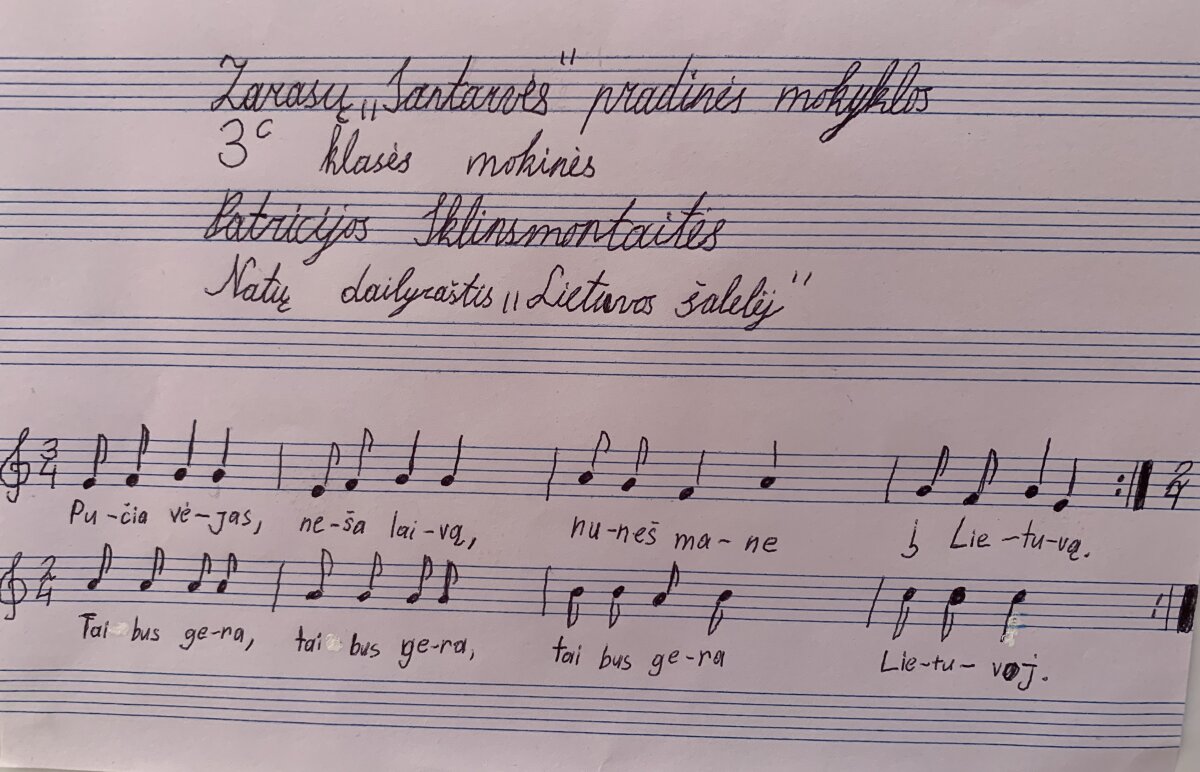 Zarasų „Santarvės" pradinės mokyklos
3c klasės mokinės
Patricijos Sklinsmontaitės
Natų dailyraštis „Lietuvos šalelėj"
3/4 2/4
Pu-čia vė-jas, ne-ša lai-vą, nu-neš ma-ne į Lie-tu-vą.
2/4
Tai bus ge-ra, tai bus ge-ra, tai bus ge-ra Lie-tu-voj.